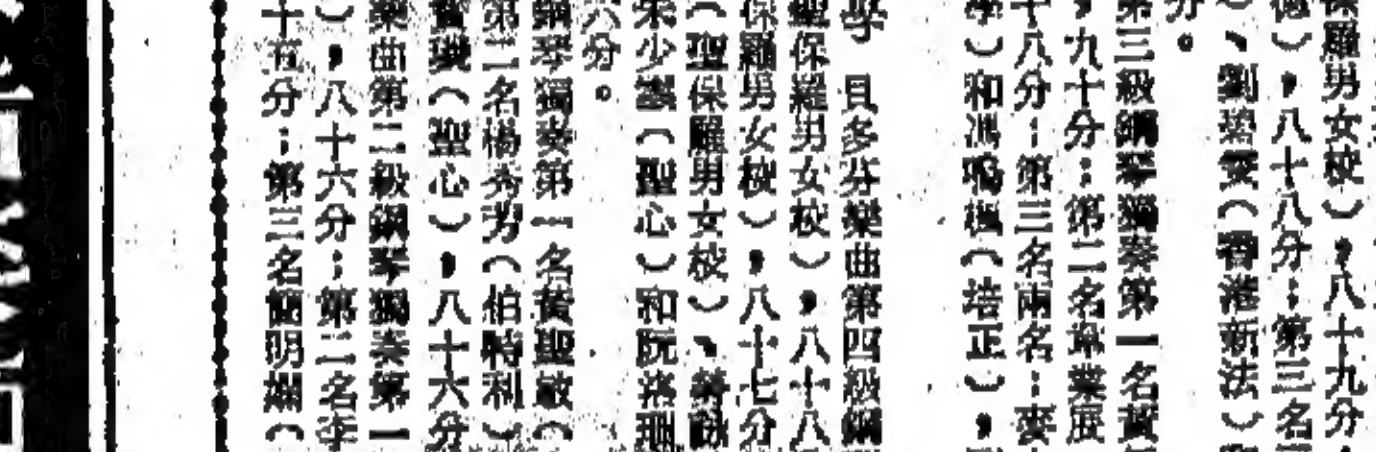 保羅男女校)，八十九分，
德)，八十八分；第三名
)、劉碧雯(香港新法)和
分。
第三級鋼琴獨奏第一名黃
，九十分；第二名韋業展
十八分；第三名兩名：麥
學)和馮鳴楓(培正)，
學　貝多芬樂曲第四級鋼
聖保羅男女校)，八十八
保羅男女校)，八十七分
(聖保羅男女校)、
朱少(聖心)和阮洛珊
六分。
鋼琴獨奏第一名黃聖啟(
第二名楊秀芳(伯特利)
(聖心)，八十六分
樂曲第二級鋼琴獨奏第一
)，八十六分；第二名李
十五分；第三名簡明嫻(